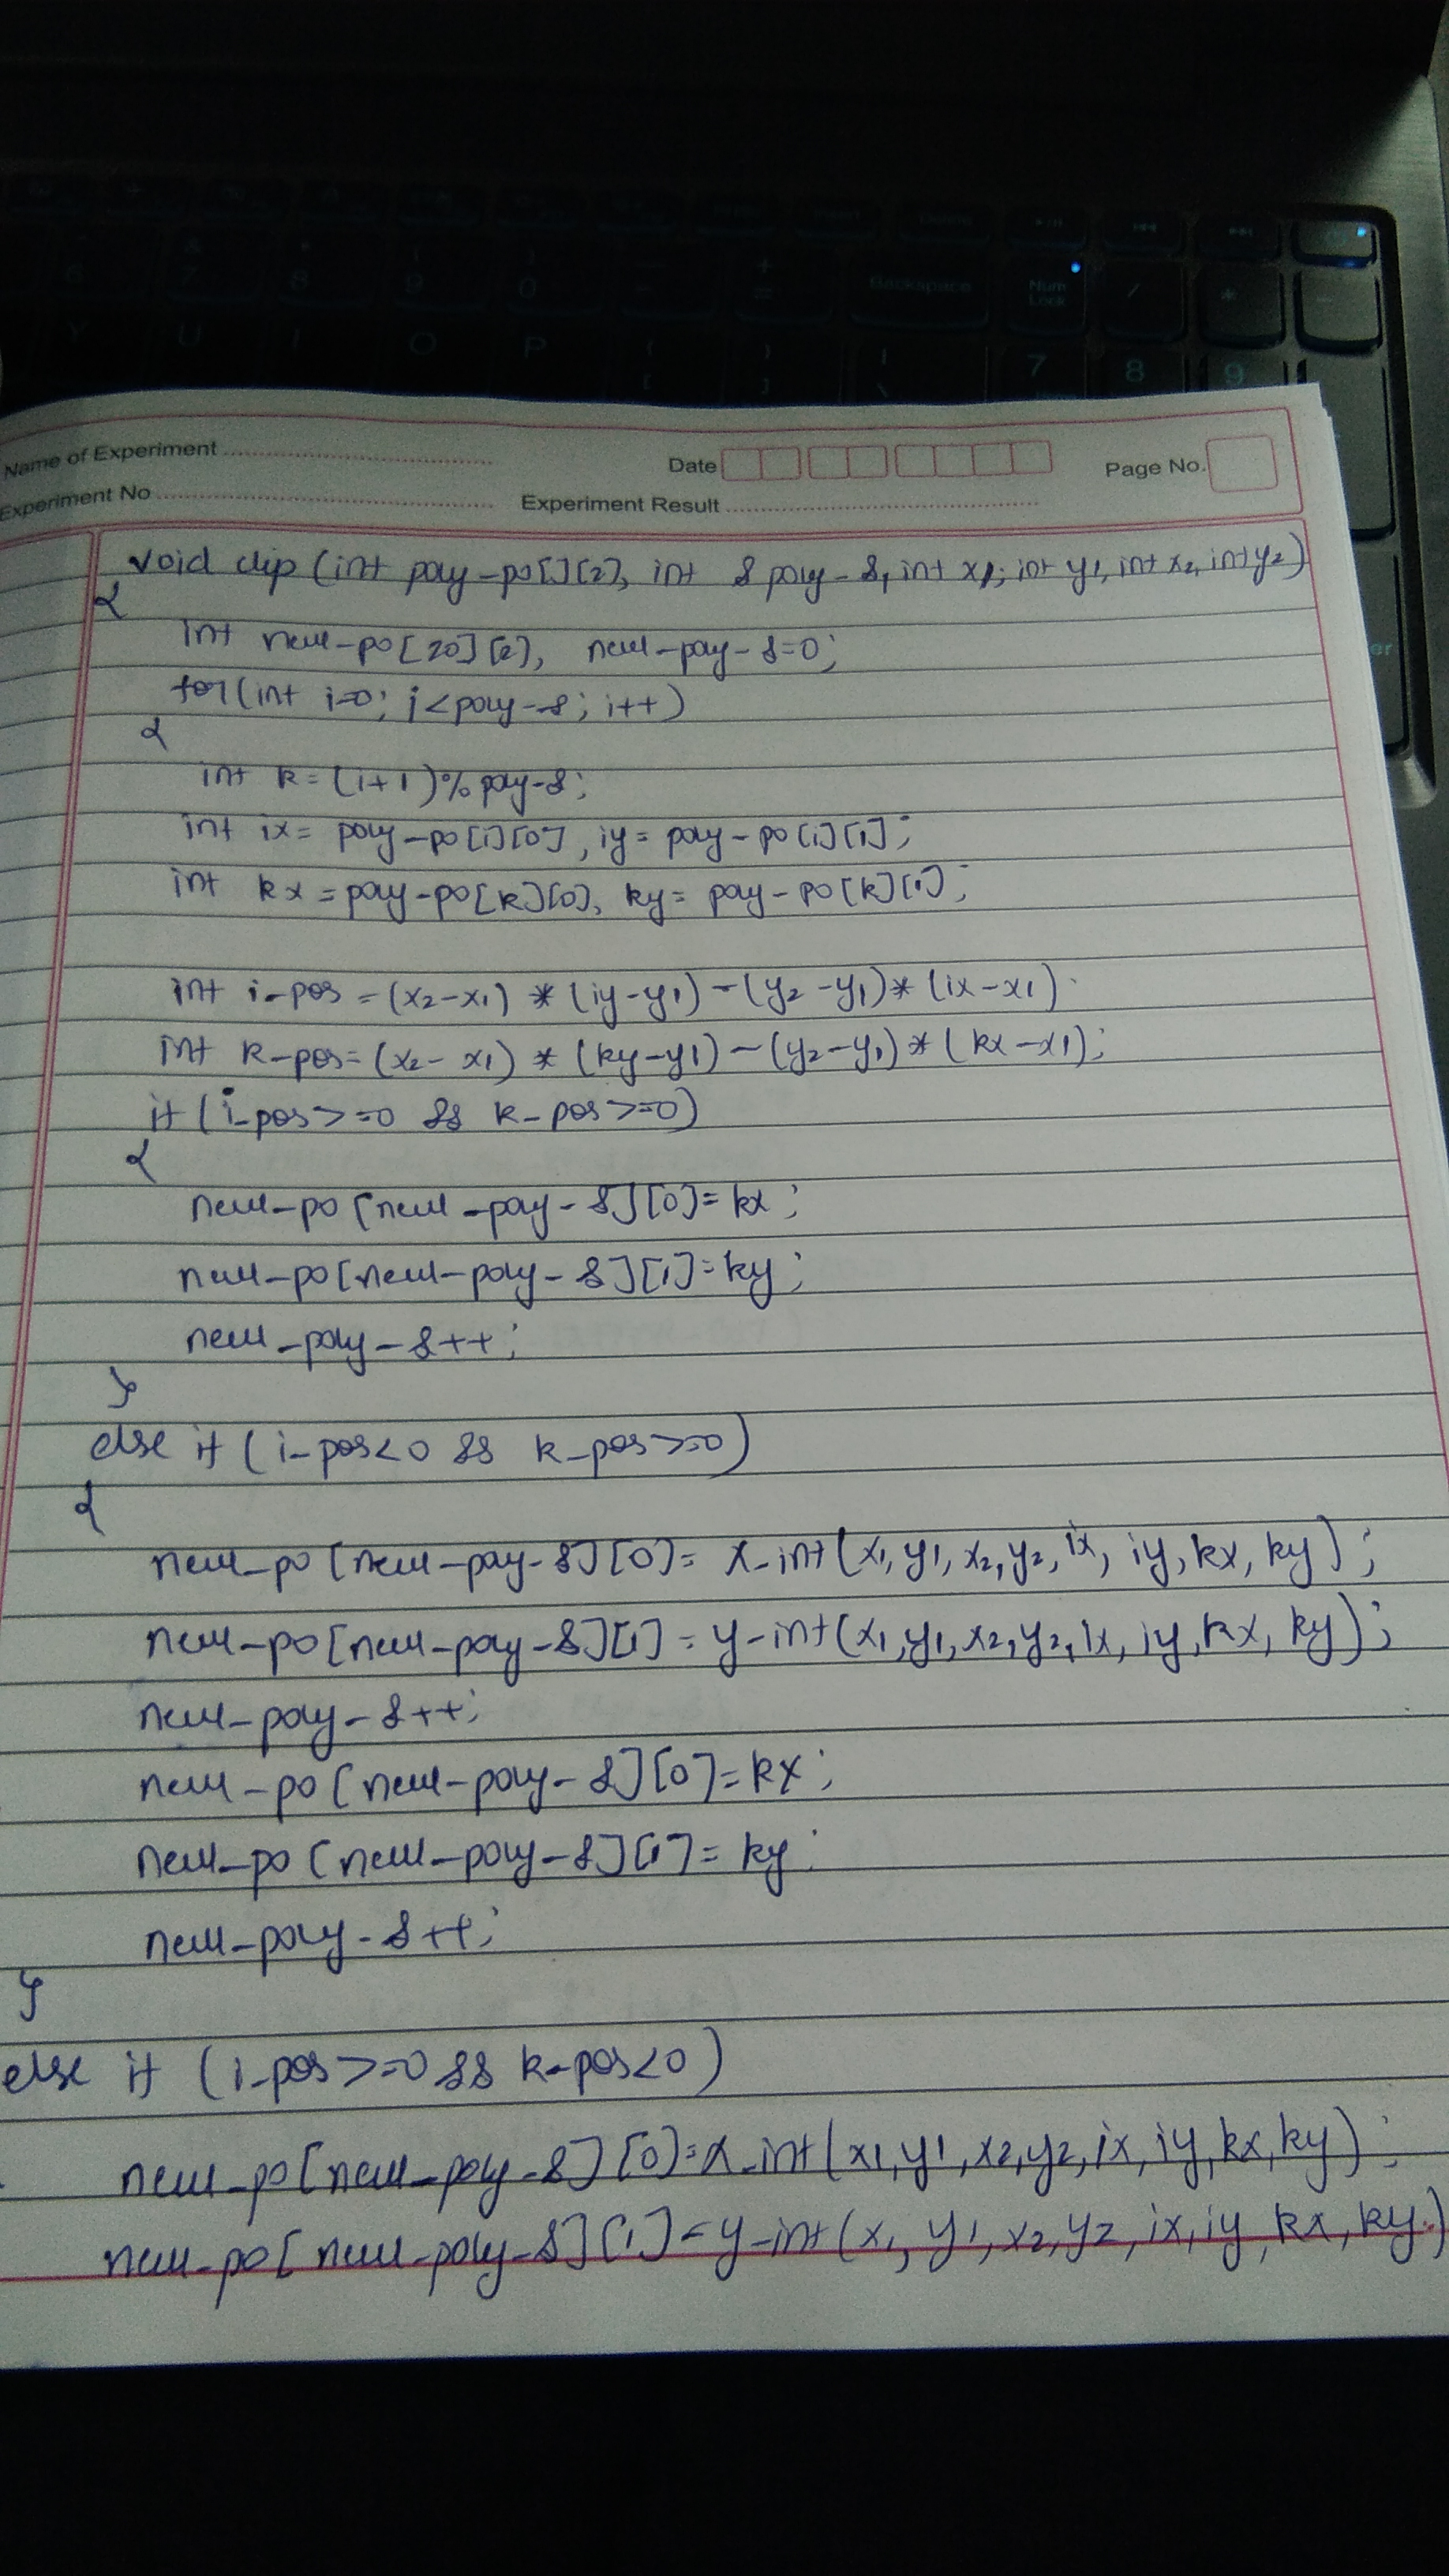 Backspace
Num Lock
Y U I O P
7 8 9
Name of Experiment
Date
Page No.
Experiment No
Experiment Result
void clip (int poly-po[][2], int & poly-s, int x1, int y1, int x2, int y2)
{
int new-po[20][2], new-poly-s=0;
for(int i=0; i<poly-s; i++)
{
int k=(i+1)%poly-s;
int ix= poly-po[i][0], iy= poly-po[i][1];
int kx =poly-po[k][0], ky= poly-po[k][1];
int i-pos =(x2-x1) * (iy-y1) -(y2-y1)* (ix-x1).
int k-pos=(x2-x1) * (ky-y1) -(y2-y1)* (kx-x1);
if (i-pos>=0 && k-pos>=0)
{
new-po[new-poly-s][0]= kx;
new-po[new-poly-s][1]=ky;
new-poly-s++;
}
else if ( i-pos<0 && k-pos>=0)
{
new-po[new-poly-s][0]= x-int(x1,y1,x2,y2,ix, iy, kx, ky);
new-po[new-poly-s][1] = y-int(x1,y1,x2,y2,ix, iy, kx, ky);
new-poly-s++;
new-po[new-poly-s][0]=kx;
new-po[new-poly-s][1]= ky;
new-poly-s++;
}
else if (i-pos>=0 && k-pos<0)
new-po[new-poly-s][0]=x-int(x1,y1,x2,y2,ix,iy,kx,ky);
new-po[new-poly-s][1]=y-int(x1, y1,x2,y2,ix,iy,kx,ky)